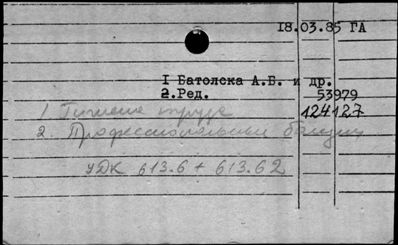 18.03.85 ГА
I Батолска А.Б. и др.
2.Ред. 53979
1 Гигиена труда 124127
2. Профессиональный болезни
УДК 613.6 + 613.62